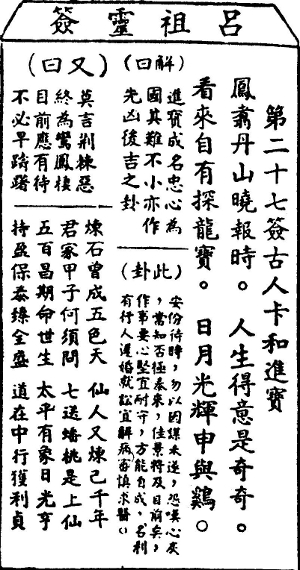 呂祖靈簽
第二十七簽古人卡和進寶
鳳翥丹山曉報時。人生得意是奇奇。
看來自有探龍寶。日月光輝申與鷄。
(解曰)
進寳成名忠心為
國其難不小亦作
先凶後吉之卦
(此卦)
安份待時,勿以因謀未遂,怨嘆心灰
,當知否極泰來,佳景將及目前矣,
作事要心堅宜耐守,方能自成,名利
有行人遲婚就訟宜解病審慎求醫。
(又曰)
莫吉荆棘惡
終為鸞鳳棲
目前應有待
不必早躊躇
煉石曾成五色天 仙人又煉已千年
君家甲子何須問 七送蟠桃是上仙
五百昌期命世生 太平有象日光亨
持盈保泰臻全盛 道在中行獲利貞